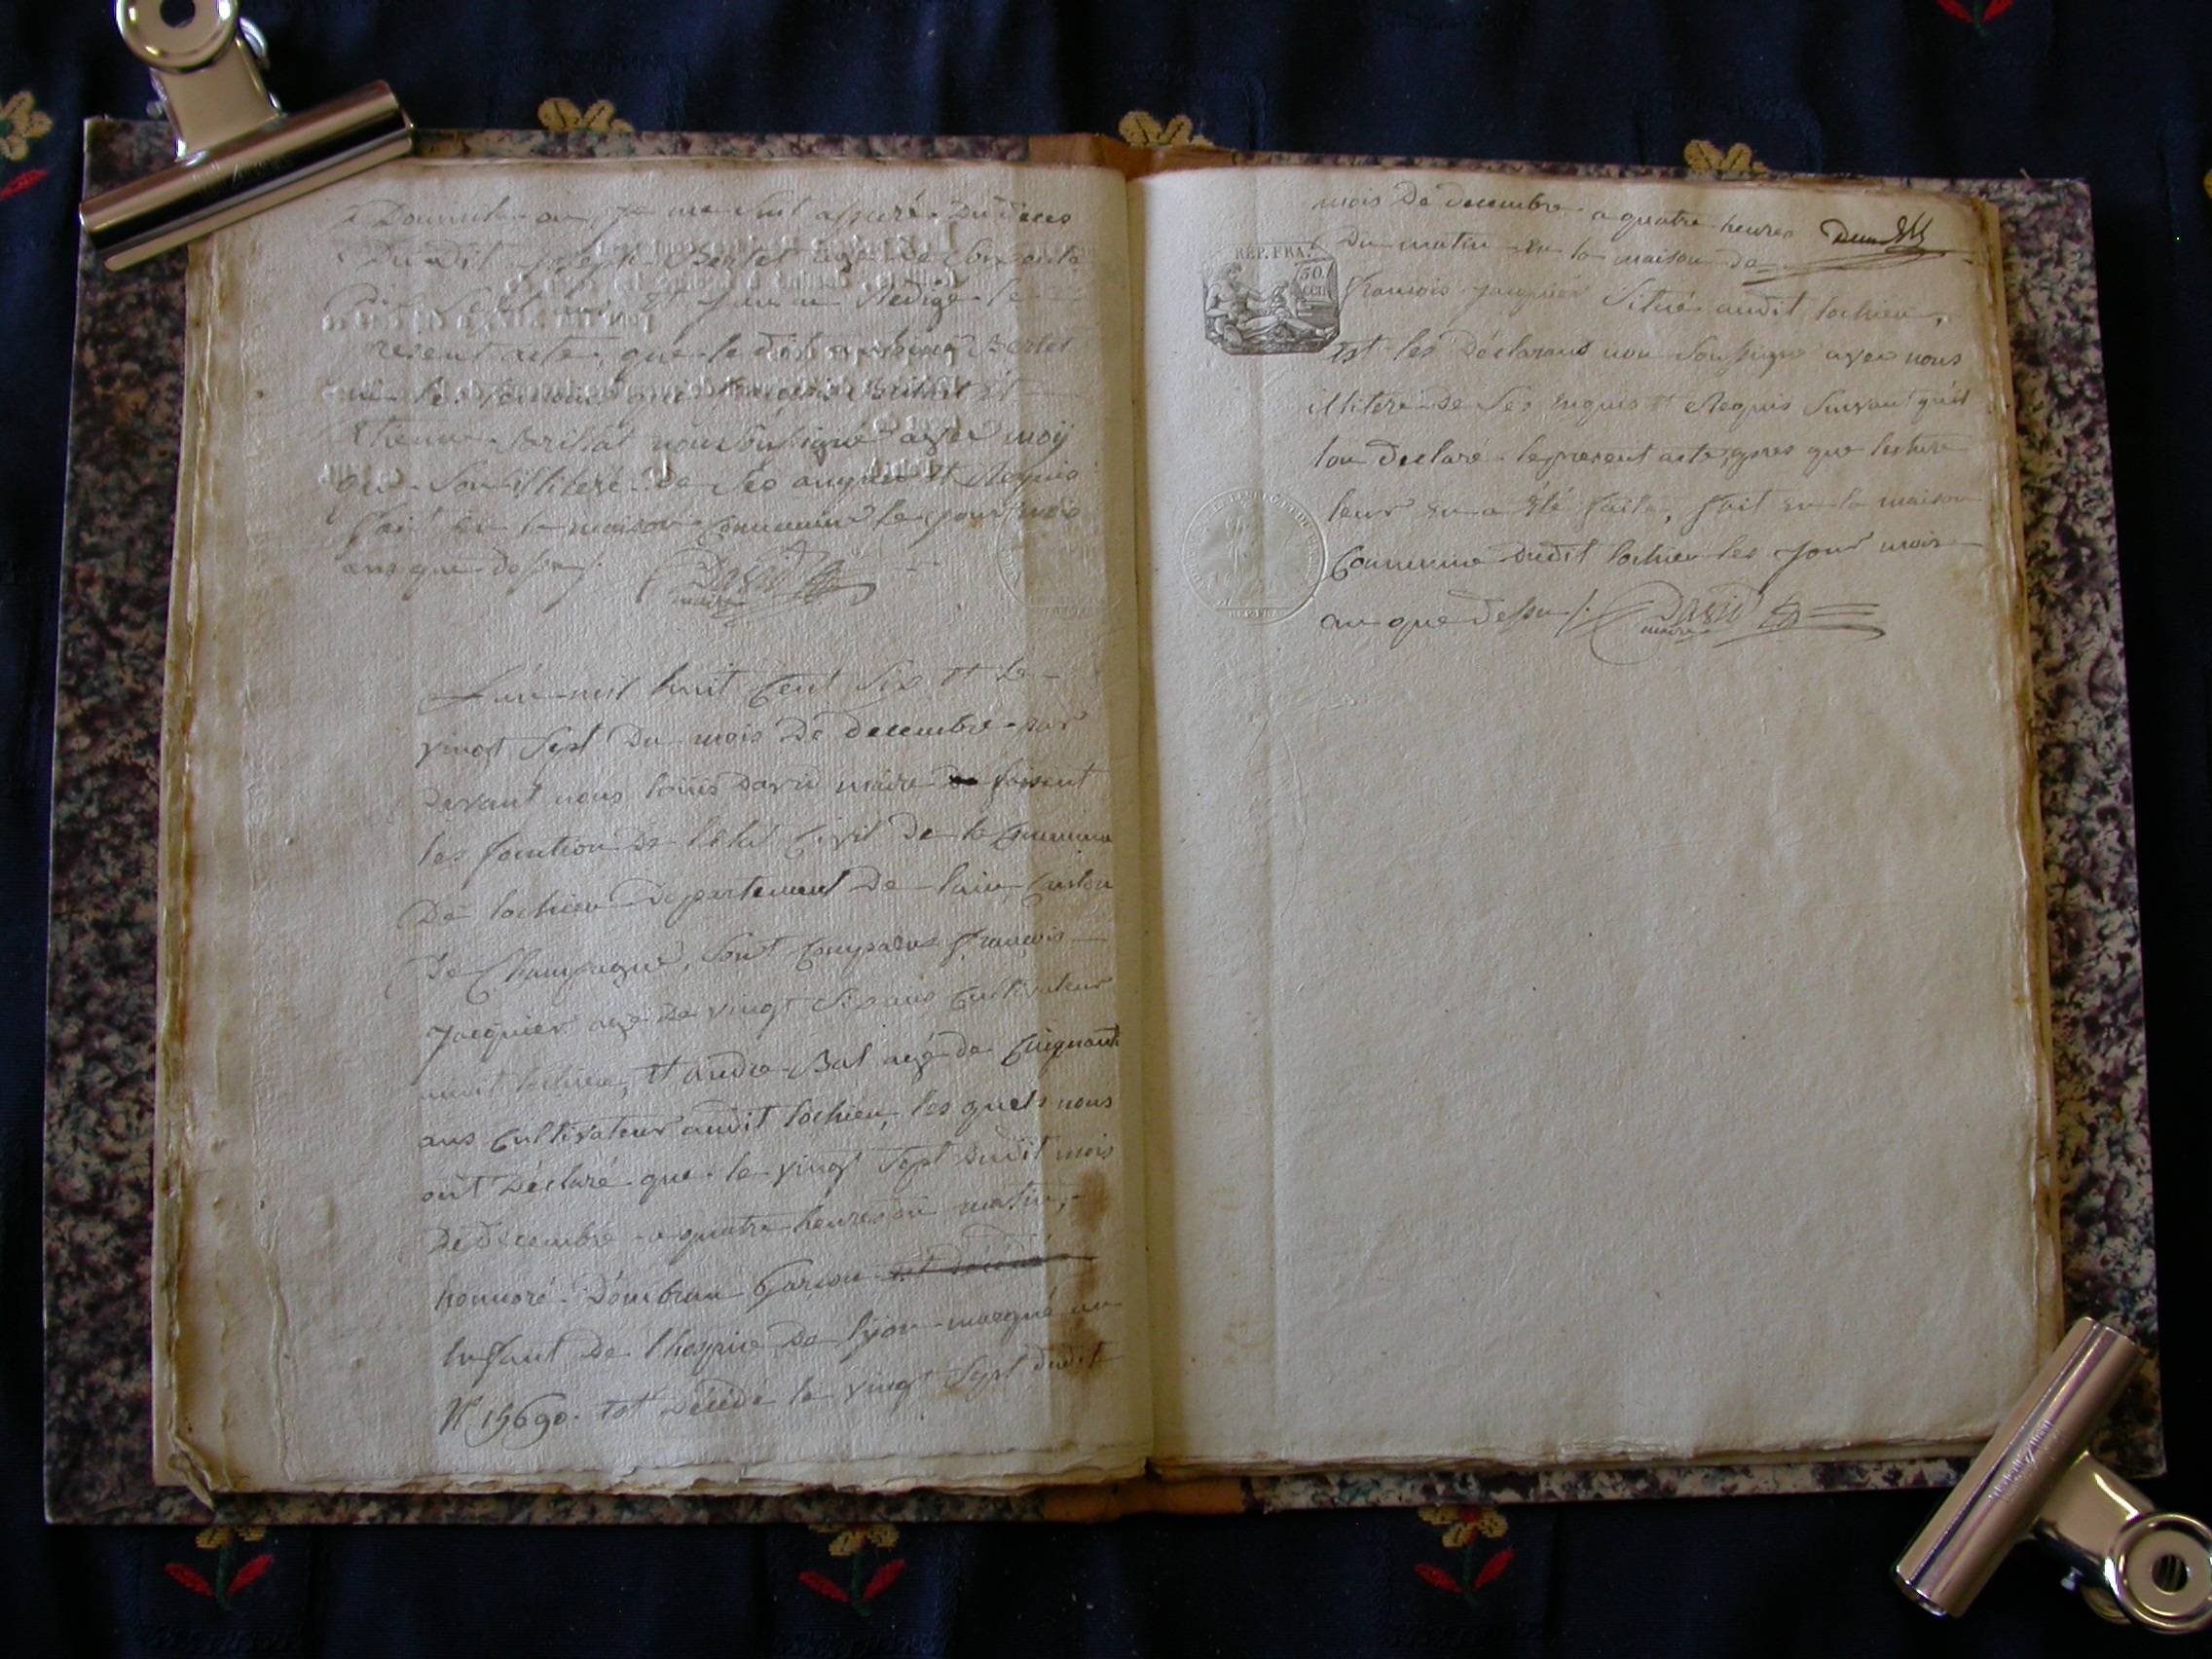 Domicile ou je me suit assuré Du deces
Dudit joseph Bertet agé de
Dix Sept ans, Et j'en ai Rédigé le
present acte, que le dit Bertet
ni les temoins que françois Brillat Et
Etienne Brillat non Soussigné avec moÿ
pour Son illiteré de Ses enquis Et Requis
fait En la maison Commune le jour mois
ans que dessus /.
David
maire
L'an mil huit Cent Six Et le
vingt Sept Du mois De decembre par
devant nous louis David maire faisent
les fonction de l'état Civil de la Commune
De lochieu Departement De lain Canton
De Champagne, Sont Comparus françois
Jacquier agé de vingt Six ans Cultivateur
audit lochieu, Et andre Bal agé de Cinquante
ans Cultivateur audit lochieu, les quels nous
ont Déclaré que le vingt Sept dudit mois
De Decembre a quatre heures du matin,
honnoré Dombrun Garcon est décédé
Enfant De l'hospice De lyon marqué au
N° 15690. Est Décédé le vingt Sept dudit
mois De decembre a quatre heures
Du matin En la maison de
REP. FRA.
50
CEN.
francois Jacquier Situé audit lochieu,
Est les Déclarans non Soussigné avec nous
illiteré de Ses Enquis Et Requis Suivant qu'il
lon declaré le present acte, apres que lecture
leur En a Eté faite, fait En la maison
Commune dudit lochieu les Jour mois
an que dessus /.
David
maire